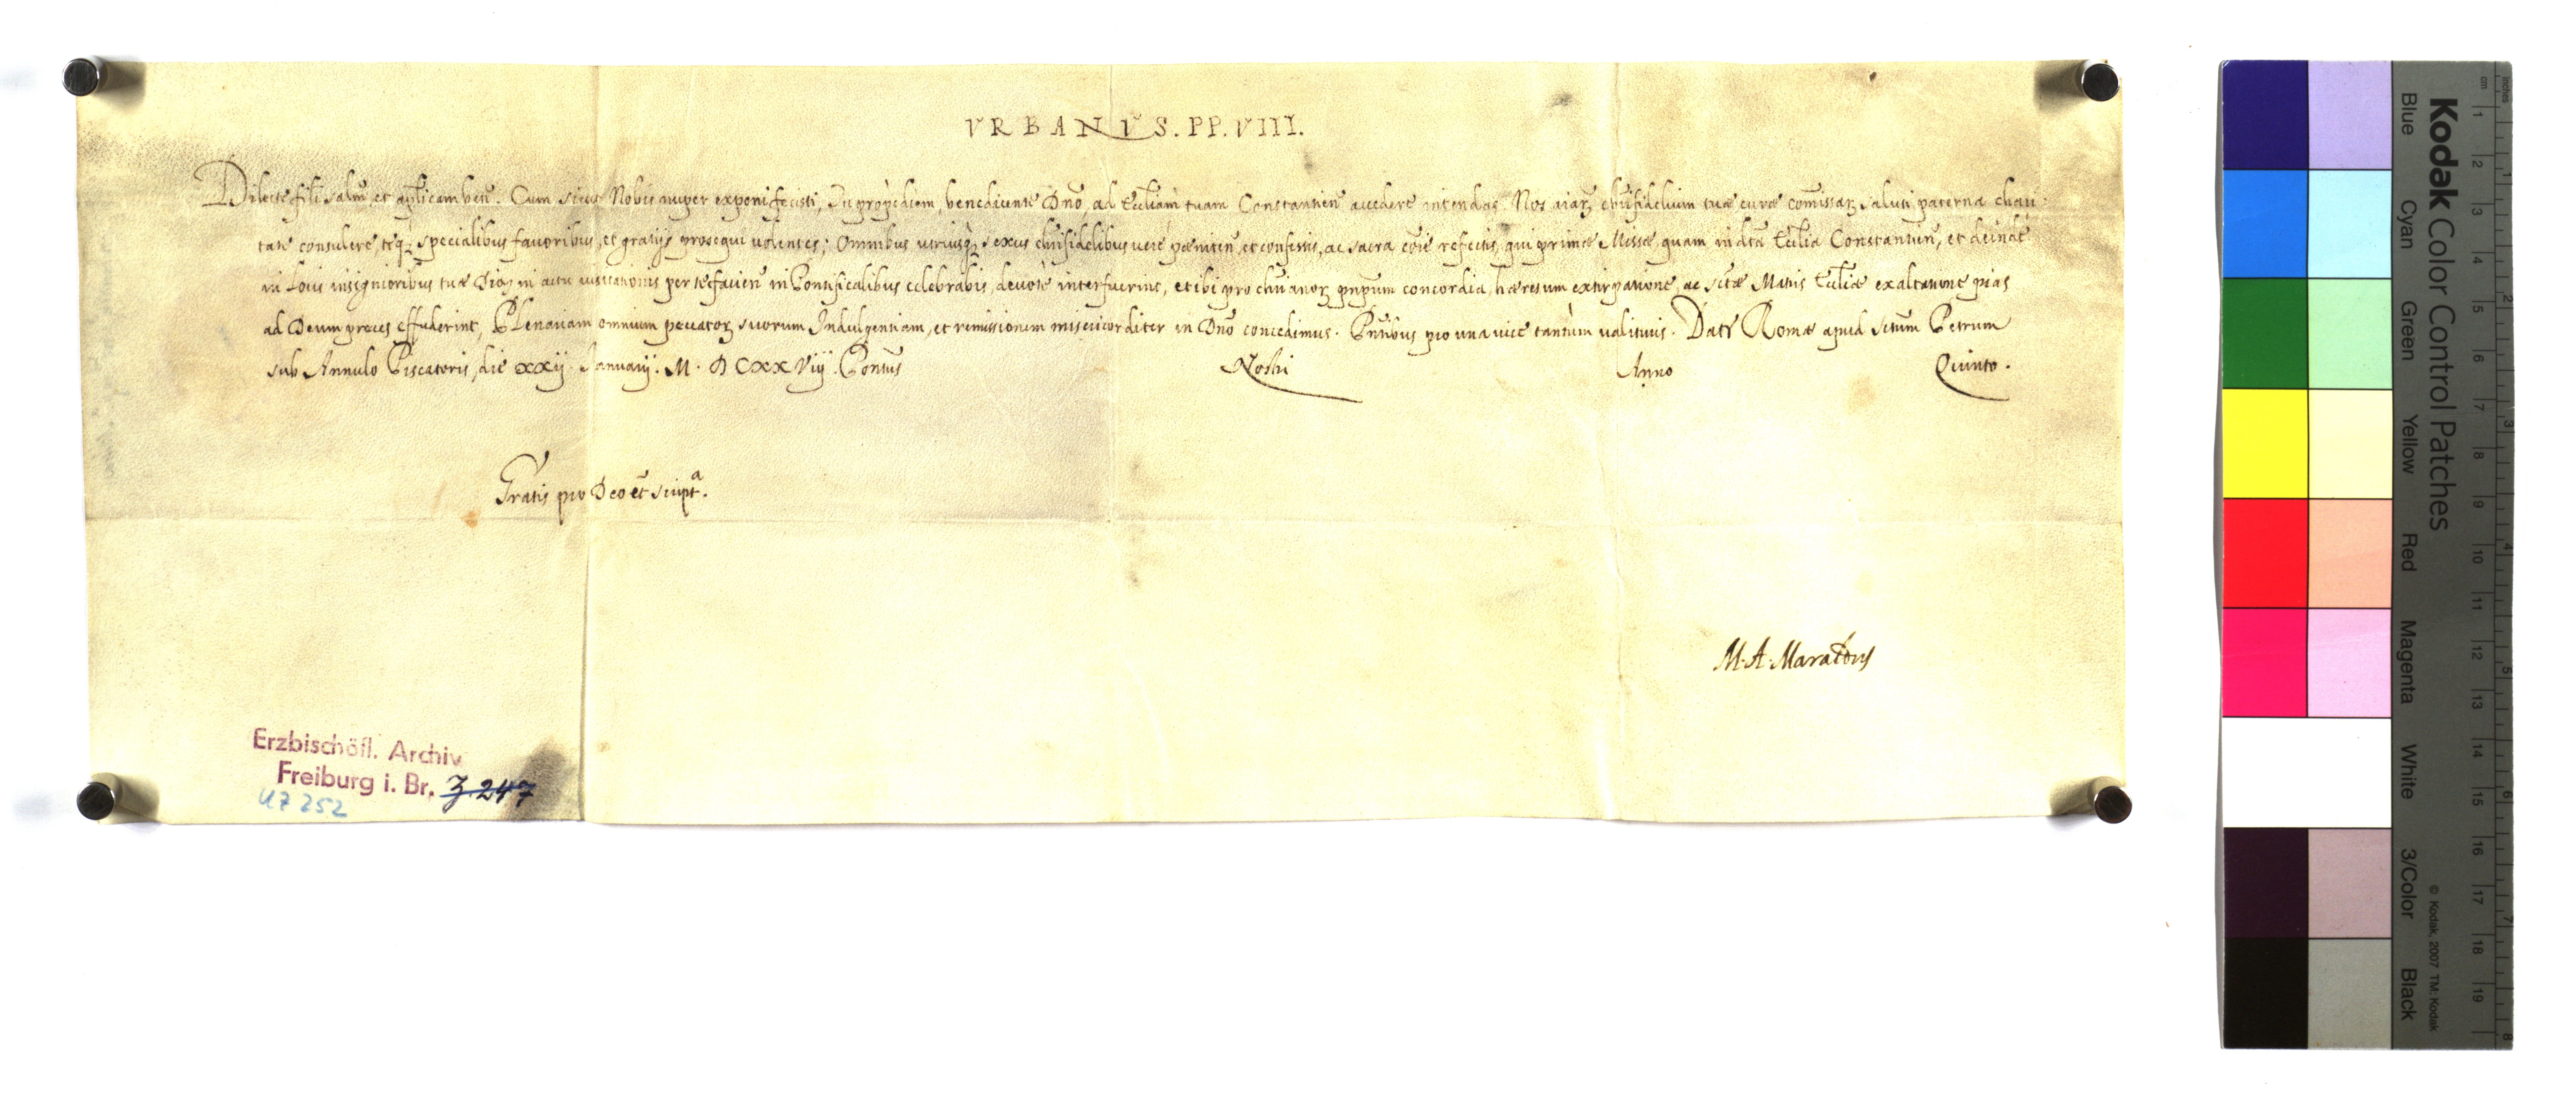 VRBANVS. PP. VIII.
Dilecte fili salm̄, et aplicam ben̄. Cum sicut Nobis nuper exponi fecisti, Tu propediem, benedicente Dnō, ad Eccliam tuam Constantien̄ accedere intendas. Nos aiarz christifidelium tuæ curæ commissarz saluti paterna chari:
tate consulere, teqz specialibus favoribus, et gratijs prosequi volentes; Omnibus utriusqz sexus christifidelibus verè pœniten̄, et confessis, ac sacra coīe refectis, qui primæ Missæ, quam in dcta Ecclia Constantien̄, et deinde
in Locis insignioribus tuæ Dioc in actu visitationis per te facien̄ in Pontificalibus celebrabis, devotè interfuerint, et ibi pro christianorz pnpum concordia, hæresum extirpatione, ac sctæ Matris Eccliæ exaltatione pias
ad Deum preces effuderint, Plenariam omnium peccatorz suorum Indulgentiam, et remissionem misericorditer in Dnō concedimus. Pntibus pro una vice tantùm valituris. Dat̄ Romæ apud sctum Petrum
sub Annulo Piscatoris, die xxij Januarij. M. DCXXViij. Pontus Nostri Anno Quinto.
Gratis pro Deo et script.ᵃ
M. A. Maraldus
Erzbischöfl. Archiv
Freiburg i. Br. Z. 247
UZ 252
Kodak Color Control Patches
© Kodak, 2007 TM: Kodak
Blue Cyan Green Yellow Red Magenta White 3/Color Black
cm 1 2 3 4 5 6 7 8 9 10 11 12 13 14 15 16 17 18 19
inches 1 2 3 4 5 6 7 8